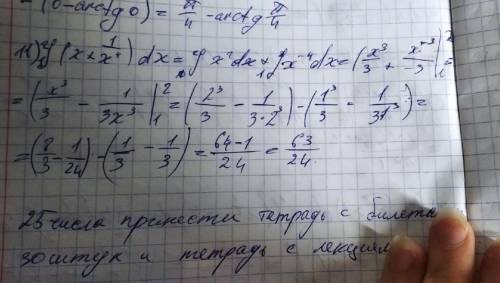 - (0 - arctg 0) = π/4 - arctg π/4
11) ∫(x + 1/x⁴) dx = ∫ x² dx + ∫₁ x⁻⁴ dx = (x³/3 + x⁻³/-3)|₁² =
= (x³/3 - 1/3x³ |₁² = (2³/3 - 1/3·2³) - (1³/3 - 1/31³) =
= (8/3 - 1/24) - (1/3 - 1/3) = 64-1/24 = 63/24.
25 числа принести тетрадь с билеты
30 штук и тетрадь с лекциям